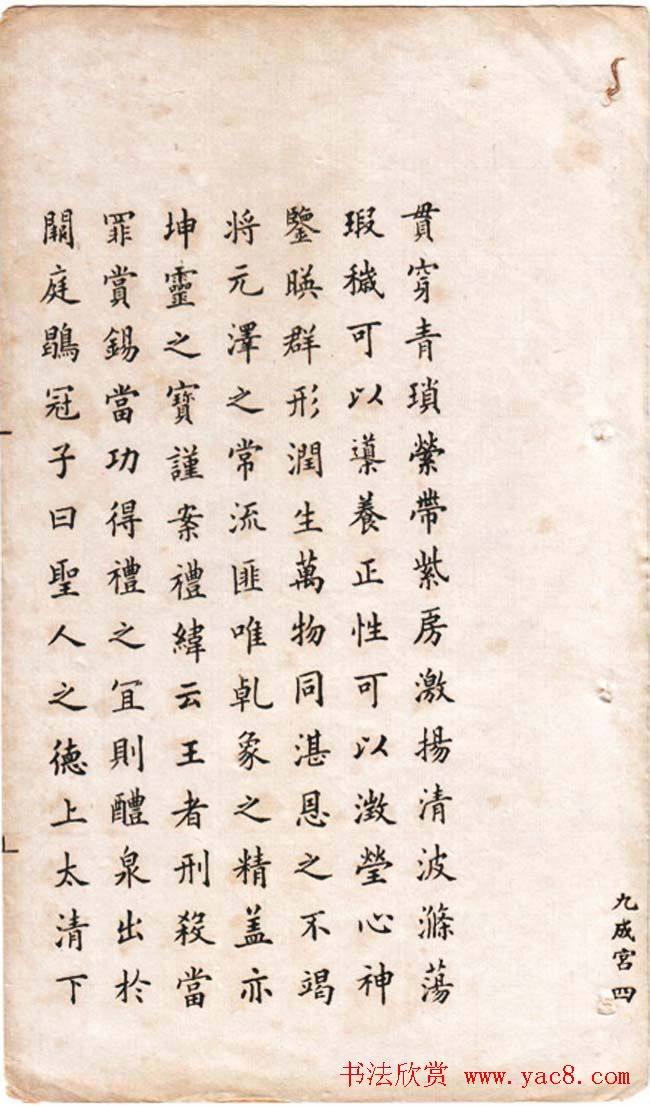 九成宮四
貫穿青瑣縈帶紫房激揚清波滌蕩
瑕穢可以導養正性可以澂瑩心神
鑒暎群形潤生萬物同湛恩之不竭
將元澤之常流匪唯乹象之精盖亦
坤靈之寶謹案禮緯云王者刑殺當
罪賞錫當功得禮之宜則醴泉出於
闕庭鶡冠子曰聖人之德上太清下
书法欣赏 www.yac8.com